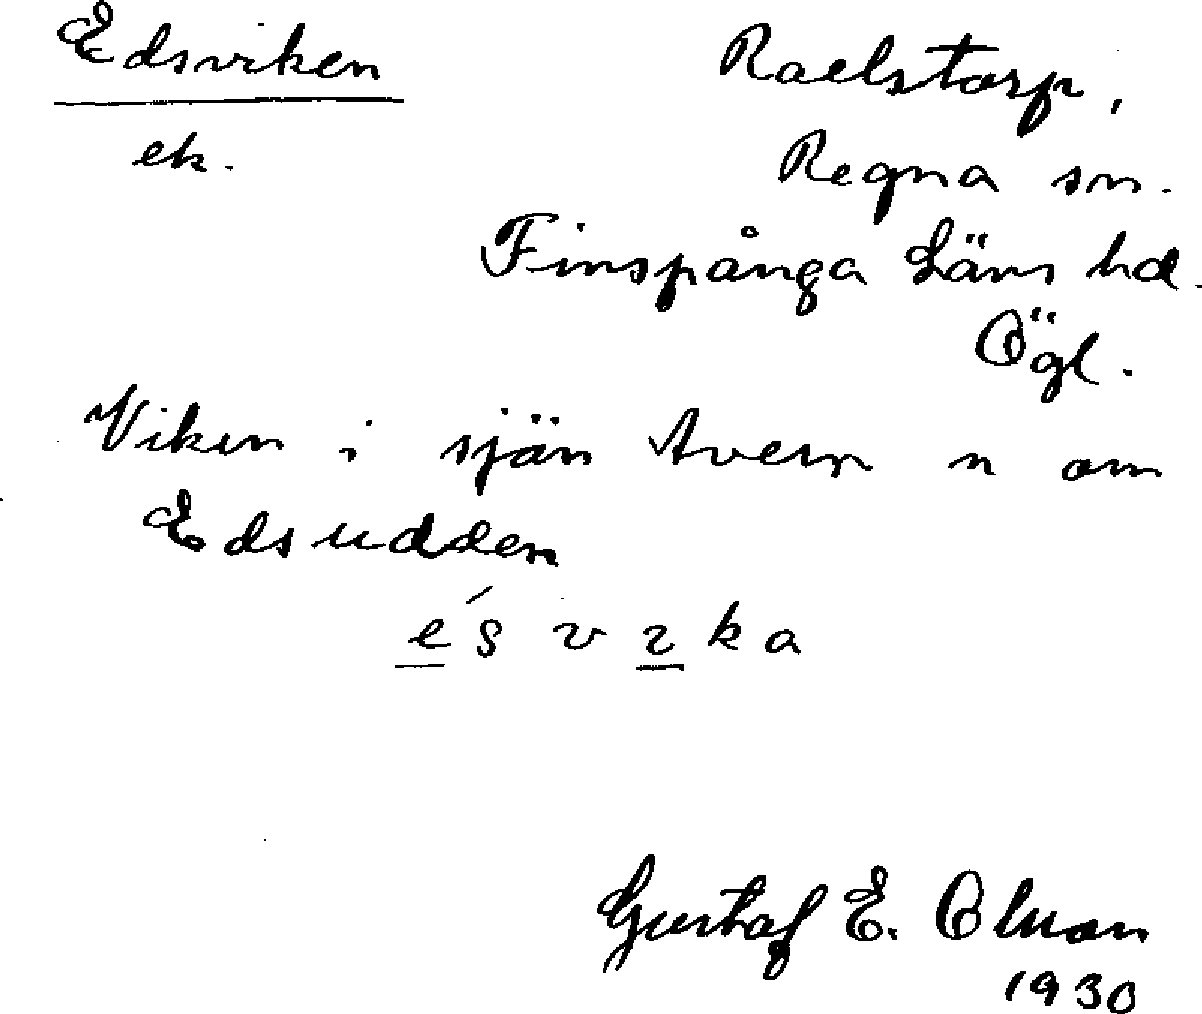 Edsviken
ek.
Raelstorp,
Regna sn.
Finspånga Läns hd.
Ögl.
Viken i sjön Avern n om
Edsudden
e´s v ɩ k a
Gustaf E. Olsson
1930